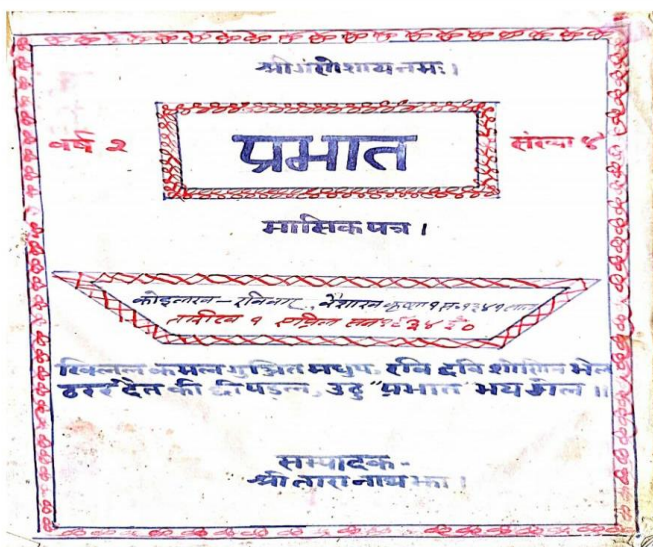 श्रीगणेशाय नमः।
वर्ष २
प्रभात
संख्या ४
मासिक पत्र।
कोइलख - रविवार, वैशाख कृष्ण १ स० १३४१ साल
तारीख १ एप्रिल सन १९३४ ई०
खिलल कमल गुञ्जित मधुप, रवि छवि शोभित भेल
ठरर दैत की छी पड़ल, उठु "प्रभात" भय गेल॥
सम्पादक -
श्री तारानाथ झा।